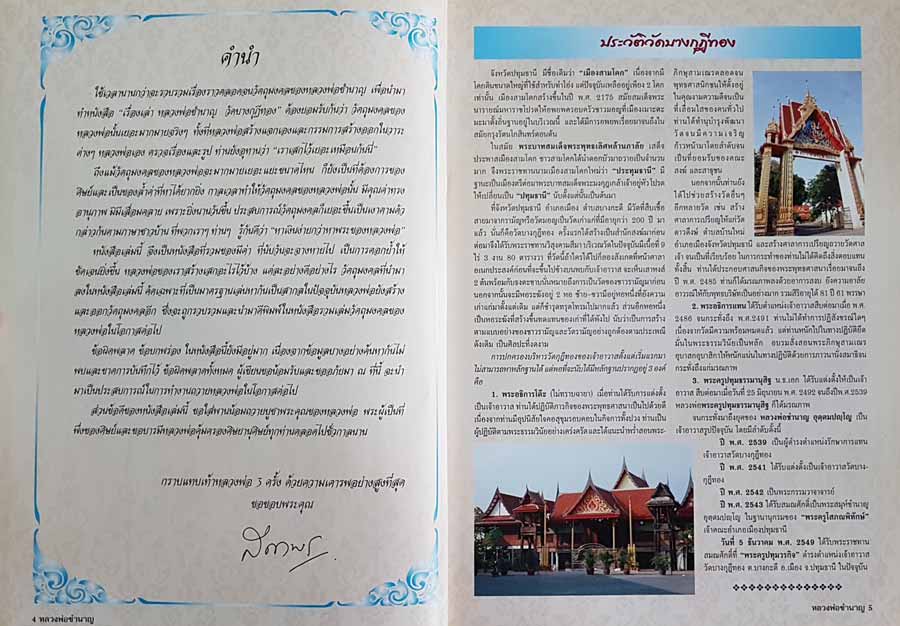 คำนำ
ใช้เวลานานกว่าจะรวบรวมเรื่องราวตลอดจนวัตถุมงคลของหลวงพ่อชำนาญ เพื่อนำมา
ทำหนังสือ "เรื่องเล่า หลวงพ่อชำนาญ วัดบางกุฎีทอง" ต้องยอมรับกันว่า วัตถุมงคลของ
หลวงพ่อนั้นเยอะมากมายจริงๆ ทั้งที่หลวงพ่อสร้างแจกเองและกรรมการสร้างออกในวาระ
ต่างๆ หลวงพ่อเอง ตรวจเรื่องและรูป ท่านยังอุทานว่า "เราเสกไว้เยอะเหมือนกันนี่"
ถึงแม้วัตถุมงคลของหลวงพ่อจะมากมายเยอะแยะขนาดไหน ก็ยังเป็นที่ต้องการของ
ศิษย์และเป็นของล้ำค่าที่หาได้ยากยิ่ง กาลเวลาทำให้วัตถุมงคลของหลวงพ่อนั้น มีคุณค่าทรง
อานุภาพ มิมีเสื่อมคลาย เพราะยิ่งนานวันขึ้น ประสบการณ์วัตถุมงคลก็เยอะขึ้นเป็นเงาตามตัว
กล่าวกันตามภาษาชาวบ้าน ที่พวกเราๆ ท่านๆ รู้กันดีว่า "หาเงินง่ายกว่าหาพระของหลวงพ่อ"
หนังสือเล่มนี้ จึงเป็นหนังสือที่รวมของมีค่า ที่นับวันจะจางหายไป เป็นการตอกย้ำให้
ชัดเจนยิ่งขึ้น หลวงพ่อของเราสร้างเสกอะไรไว้บ้าง แต่ละอย่างดีอย่างไร วัตถุมงคลที่นำมา
ลงในหนังสือเล่มนี้ คัดเฉพาะที่เป็นมาตรฐานเล่นหากันเป็นสากลในปัจจุบันหลวงพ่อยังสร้าง
และออกวัตถุมงคลอีก ซึ่งจะถูกรวบรวมและนำมาตีพิมพ์ในหนังสือรวมเล่มวัตถุมงคลของ
หลวงพ่อในโอกาสต่อไป
ข้อผิดพลาด ข้อบกพร่อง ในหนังสือนี้ยังมีอยู่มาก เนื่องจากข้อมูลบางอย่างค้นหากันไม่
พบและขาดการบันทึกไว้ ข้อผิดพลาดทั้งหมด ผู้เขียนขอน้อมรับและขออภัยมา ณ ที่นี้ จะนำ
มาเป็นประสบการณ์ในการทำงานถวายหลวงพ่อในโอกาสต่อไป
ส่วนข้อดีของหนังสือเล่มนี้ ขอใส่พานน้อมถวายบูชาพระคุณของหลวงพ่อ พระผู้เป็นที่
พึ่งของศิษย์และขอบารมีหลวงพ่อคุ้มครองศิษยานุศิษย์ทุกท่านตลอดไปชั่วกาลนาน
กราบแทบเท้าหลวงพ่อ 3 ครั้ง ด้วยความเคารพอย่างสูงที่สุด
ขอขอบพระคุณ
4 หลวงพ่อชำนาญ
ประวัติวัดบางกุฎีทอง
จังหวัดปทุมธานี มีชื่อเดิมว่า "เมืองสามโคก" เนื่องจากมี
โคกดินขนาดใหญ่ที่ใช้สำหรับทำโอ่ง แต่ปัจจุบันเหลืออยู่เพียง 2 โคก
เท่านั้น เมืองสามโคกสร้างขึ้นในปี พ.ศ. 2175 สมัยสมเด็จพระ
นารายณ์มหาราชโปรดให้อพยพครอบครัวชาวมอญที่เมืองเมาะตะ
มะมาตั้งถิ่นฐานอยู่ในบริเวณนี้ และได้มีการอพยพเรื่อยมาจนถึงใน
สมัยกรุงรัตนโกสินทร์ตอนต้น
ในสมัย พระบาทสมเด็จพระพุทธเลิศหล้านภาลัย เสด็จ
ประพาสเมืองสามโคก ชาวสามโคกได้นำดอกบัวมาถวายเป็นจำนวน
มาก จึงพระราชทานนามเมืองสามโคกใหม่ว่า "ประทุมธานี" มี
ฐานะเป็นเมืองตรีต่อมาพระบาทสมเด็จพระมงกุฎเกล้าเจ้าอยู่หัวโปรด
ให้เปลี่ยนเป็น "ปทุมธานี" นับตั้งแต่นั้นเป็นต้นมา
ที่จังหวัดปทุมธานี อำเภอเมือง ตำบลบางกะดี มีวัดที่สืบเชื้อ
สายมาจากรามัญหรือวัดมอญเป็นวัดเก่าแก่ที่มีอายุกว่า 200 ปี มา
แล้ว นั่นก็คือวัดบางกุฎีทอง ครั้งแรกได้สร้างเป็นสำนักสงฆ์มาก่อน
ต่อมาจึงได้รับพระราชทานวิสุงคามสีมา บริเวณวัดในปัจจุบันมีเนื้อที่ 9
ไร่ 3 งาน 80 ตารางวา
การปกครองบริหารวัดกุฎีทองของเจ้าอาวาสตั้งแต่เริ่มแรกมา
ไม่สามารถหาหลักฐานได้ แต่พอที่จะนับได้มีหลักฐานปรากฏอยู่ 3 องค์
คือ
1. พระอธิการโต๊ะ (ไม่ทราบฉายา) เมื่อท่านได้รับการแต่งตั้ง
เป็นเจ้าอาวาส ท่านได้ปฏิบัติภารกิจของพระพุทธศาสนาเป็นไปด้วยดี
เนื่องจากท่านมีอุปนิสัยใจคอสุขุมรอบคอบในกิจการทั้งปวง ท่านเป็น
ผู้ปฏิบัติตามพระธรรมวินัยอย่างเคร่งครัด และได้แนะนำพร่ำสอนพระ-
ภิกษุสามเณรตลอดจน
พุทธศาสนิกชนให้ตั้งอยู่
ในคุณงามความดีจนเป็น
ที่เลื่อมใสของคนทั่วไป
ท่านได้ทำนุบำรุงพัฒนา
วัดจนมีความเจริญ
ก้าวหน้ามาโดยลำดับจน
เป็นที่ยอมรับของคณะ
สงฆ์ และสาธุชน
นอกจากนั้นท่านยัง
ได้ไปช่วยสร้างวัดอื่นๆ
อีกหลายวัด เช่น สร้าง
ศาลาการเปรียญให้แก่วัด
ดาวดึงษ์ ตำบลบ้านใหม่
อำเภอเมืองจังหวัดปทุมธานี และสร้างศาลาการเปรียญถวายวัดศาล
เจ้า จนเป็นที่เรียบร้อย ในการกระทำของท่านไม่ได้คิดถึงสิ่งตอบแทน
ทั้งสิ้น ท่านได้ประกอบศาสนกิจของพระพุทธศาสนาเรื่อยมาจนถึง
ปี พ.ศ. 2485 ท่านก็ได้มรณภาพลงด้วยอาการสงบ ยังความอาลัย
อาวรณ์ให้กับพุทธบริษัทเป็นอย่างมาก รวมสิริอายุได้ 81 ปี 61 พรรษา
2. พระอธิการแทน ได้รับตำแหน่งเจ้าอาวาสสืบต่อมาเมื่อ พ.ศ.
2486 จนกระทั่งถึง พ.ศ.2491 ท่านไม่ได้ทำการปฏิสังขรณ์ใดๆ
เนื่องจากวัดมีความพร้อมหมดแล้ว แต่ท่านหนักไปในทางปฏิบัติยึด
มั่นในพระธรรมวินัยเป็นหลัก อบรมสั่งสอนพระภิกษุสามเณร
อุบาสกอุบาสิกาให้หนักแน่นในทางปฏิบัติด้วยการภาวนานั่งสมาธิจน
กระทั่งถึงแก่มรณภาพ
3. พระครูปทุมธรรมานุสิฐ น.ธ.เอก ได้รับแต่งตั้งให้เป็นเจ้า
อาวาส สืบต่อมาเมื่อวันที่ 25 มิถุนายน พ.ศ. 2492 จนถึงปีพ.ศ.2539
หลวงพ่อพระครูปทุมธรรมานุสิฐ ก็ได้มรณภาพ
จนกระทั่งมาถึงยุคของ หลวงพ่อชำนาญ อุตฺตมปญฺโญ เป็น
เจ้าอาวาสรูปปัจจุบัน โดยมีลำดับดังนี้
ปี พ.ศ. 2539 เป็นผู้ดำรงตำแหน่งรักษาการแทน
เจ้าอาวาสวัดบางกุฎีทอง
ปี พ.ศ. 2541 ได้รับแต่งตั้งเป็นเจ้าอาวาสวัดบาง-
กุฎีทอง
ปี พ.ศ. 2542 เป็นพระกรรมวาจาจารย์
ปี พ.ศ. 2543 ได้รับสมณศักดิ์เป็นพระสมุห์ชำนาญ
อุตฺตมปญฺโญ ในฐานานุกรมของ "พระครูโสภณพิทักษ์"
เจ้าคณะอำเภอเมืองปทุมธานี
วันที่ 5 ธันวาคม พ.ศ. 2549 ได้รับพระราชทาน
สมณศักดิ์ที่ "พระครูปทุมวรกิจ" ดำรงตำแหน่งเจ้าอาวาส
วัดบางกุฎีทอง ต.บางกะดี อ.เมือง จ.ปทุมธานี ในปัจจุบัน
หลวงพ่อชำนาญ 5